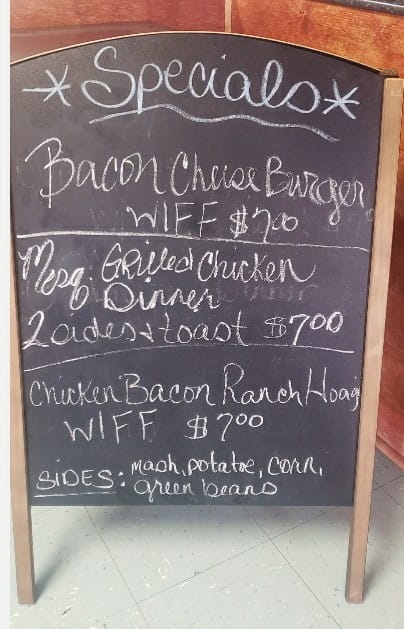 *Specials*
Bacon Cheese Burger
W/FF $7.00
Mesq. Grilled Chicken
Dinner
2 sides + toast $7.00
Chicken Bacon Ranch Hoag
W/FF $7.00
SIDES: mash, potatoe, corn,
green beans